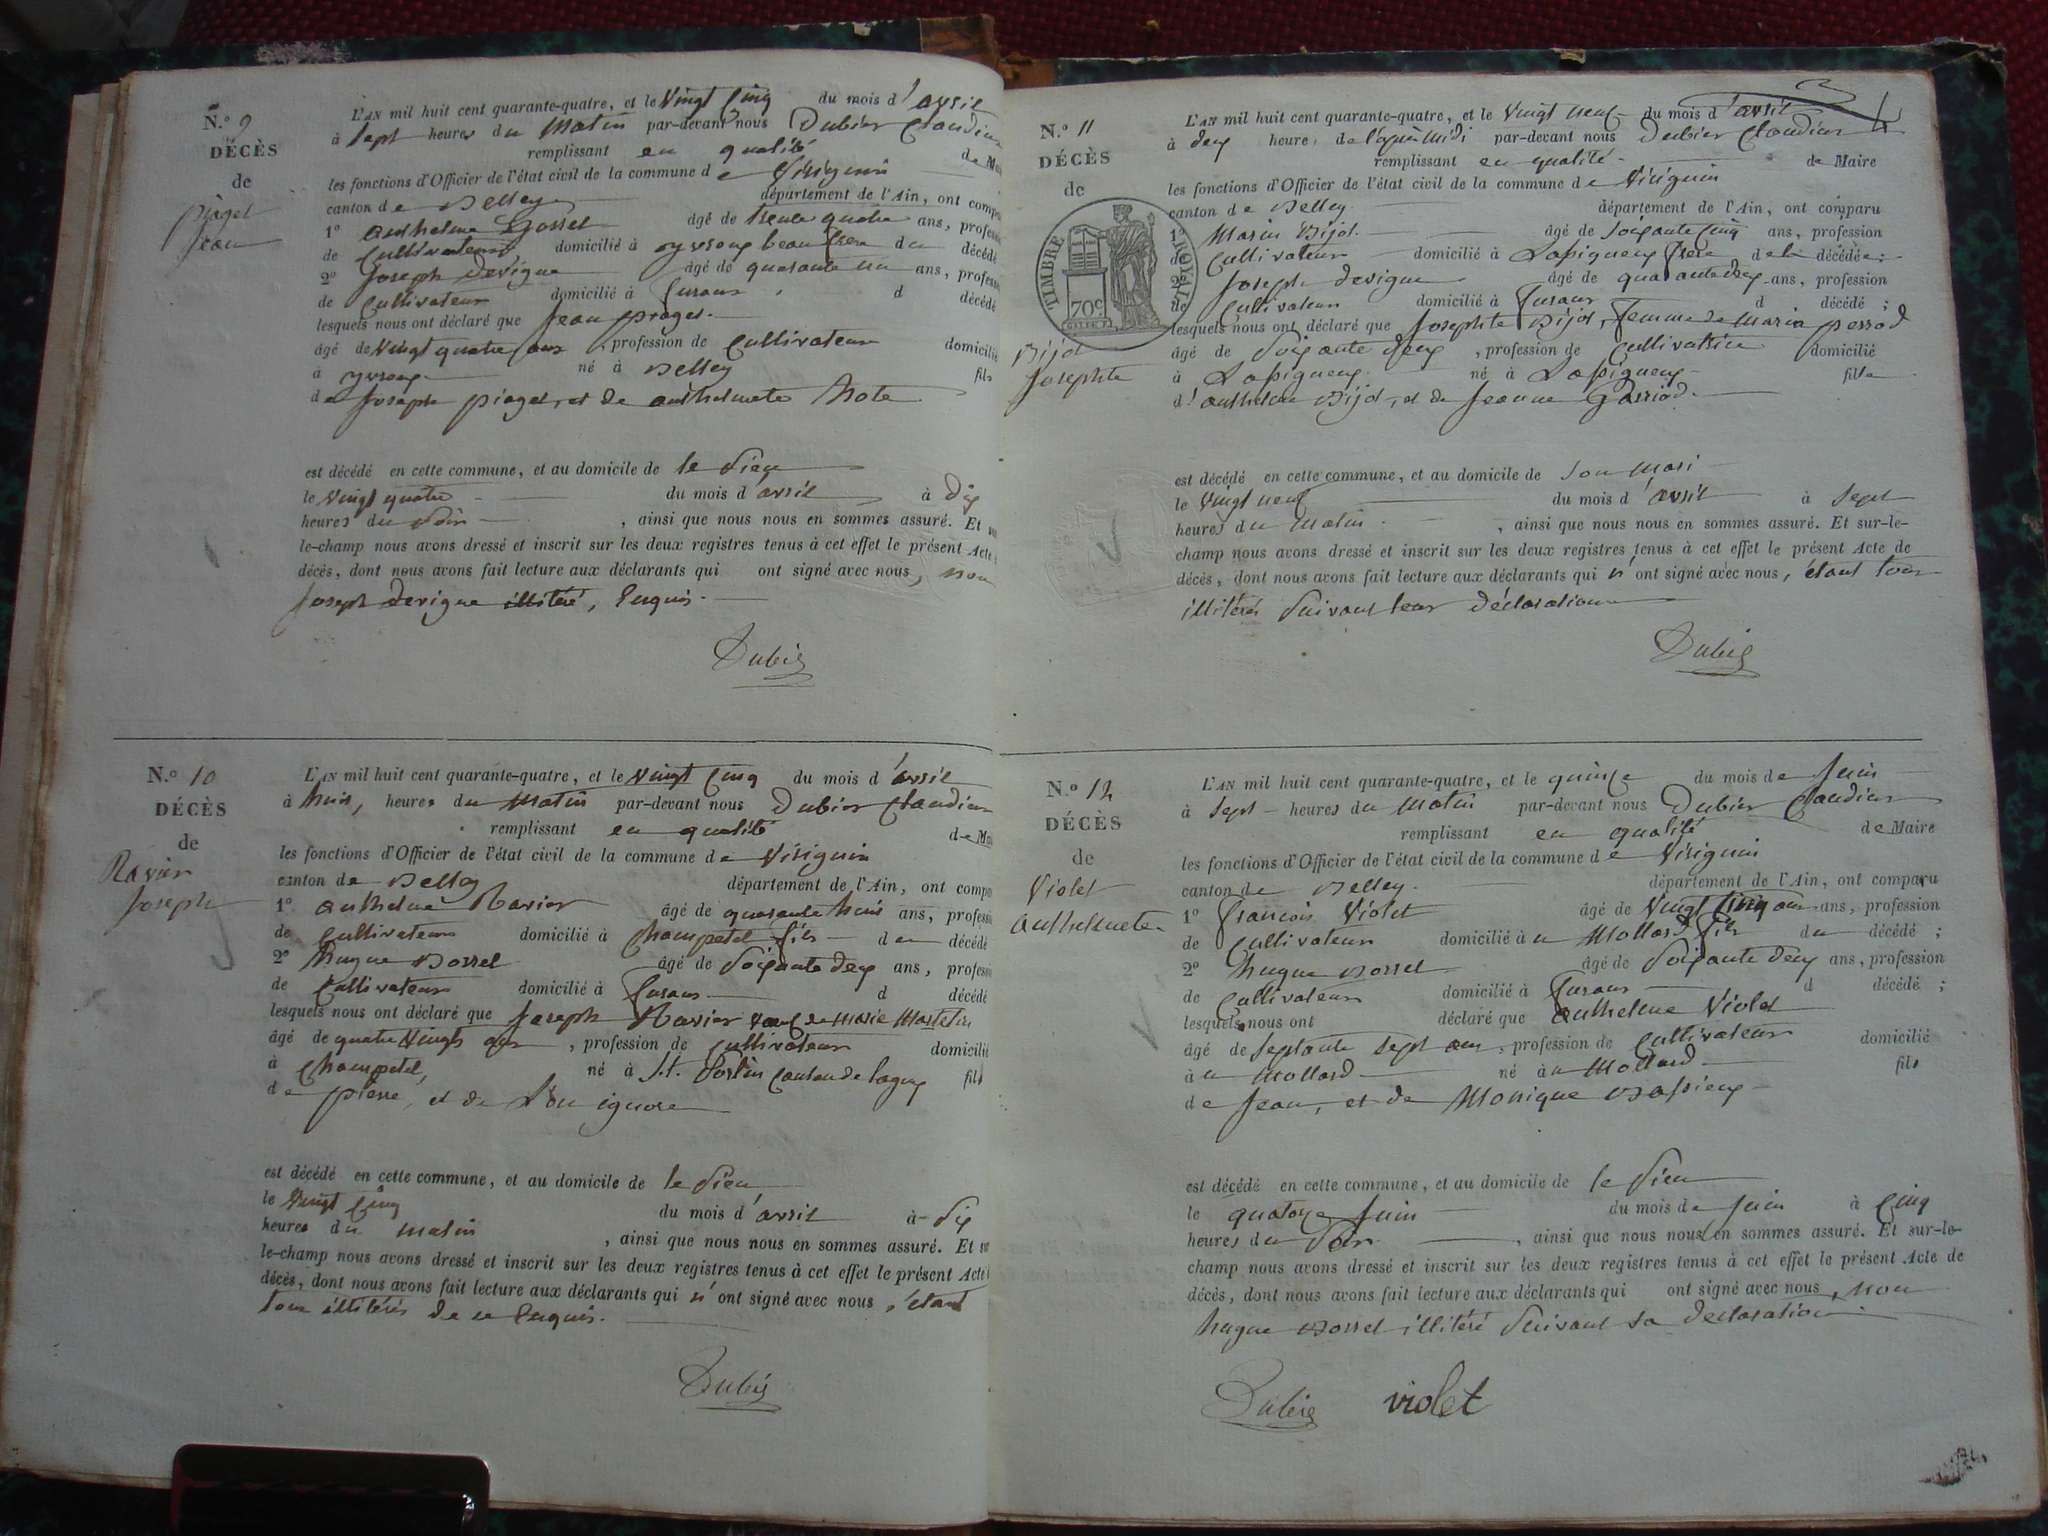 N.º 9
DÉCÈS
de
piaget
Jean
L'AN mil huit cent quarante-quatre, et le Vingt Cinq du mois d'avril
à Sept heures du Matin par-devant nous Dubier Claudius
remplissant en qualité de
les fonctions d'Officier de l'état civil de la commune de Virignin
canton de Belley département de l'Ain, ont
1º Anthelme âgé de trente quatre ans,
de Cultivateur domicilié à beau frere du décédé
2º Joseph Devigne âgé de quarante un ans,
de Cultivateur domicilié à d décédé
lesquels nous ont déclaré que Jean
âgé de Vingt quatre ans, profession de Cultivateur
à né à Belley fils
de Joseph piaget, et de anthelmete
est décédé en cette commune, et au domicile de le Sien
le Vingt quatre du mois d'avril à dix
heures du Soir, ainsi que nous nous en sommes assuré. Et
le-champ nous avons dressé et inscrit sur les deux registres tenus à cet effet le présent Acte
décès, dont nous avons fait lecture aux déclarants qui ont signé avec nous, non
Joseph Devigne illitéré, Enquis.
Dubier
N.º 10
DÉCÈS
de
Ravier
Joseph
L'AN mil huit cent quarante-quatre, et le Vingt Cinq du mois d'avril
à huit, heures du Matin par-devant nous Dubier Claudius
remplissant en qualité de
les fonctions d'Officier de l'état civil de la commune de Virignin
canton de Belley département de l'Ain, ont
1º Anthelme Ravier âgé de quarante huit ans,
de Cultivateur domicilié à Champetel fils du décédé
2º hugue Bossel âgé de Soixante deux ans,
de Cultivateur domicilié à d décédé
lesquels nous ont déclaré que Joseph Ravier veuf de Marie
âgé de quatre Vingts ans, profession de Cultivateur
à Champetel, né à S.t canton de fils
de pierre, et de L'on ignore
est décédé en cette commune, et au domicile de le Sien
le Vingt Cinq du mois d'avril à Six
heures du matin, ainsi que nous nous en sommes assuré. Et
le-champ nous avons dressé et inscrit sur les deux registres tenus à cet effet le présent Acte
décès, dont nous avons fait lecture aux déclarants qui n'ont signé avec nous, étant
tous illitérés de ce Enquis.
Dubier
N.º 11
DÉCÈS
de
TIMBRE ROYAL
70c
Bijot
Josephte
L'AN mil huit cent quarante-quatre, et le Vingt neuf du mois d'avril
à deux heures de l'après Midi par-devant nous Dubier Claudius
remplissant en qualité de Maire
les fonctions d'Officier de l'état civil de la commune de Virignin
canton de Belley département de l'Ain, ont comparu
1º Marin Bijot âgé de Soixante Cinq ans, profession
de Cultivateur domicilié à Lassigneux frere de la décédée;
2º Joseph Devigne âgé de quarante deux ans, profession
de Cultivateur domicilié à d décédé;
lesquels nous ont déclaré que Josephte Bijot, femme de Marin perrod
âgé de Soixante deux, profession de Cultivatrice domicilié
à Lassigneux né à Lassigneux fille
d'anthelme Bijot, et de Jeanne
est décédé en cette commune, et au domicile de Son Mari
le Vingt neuf du mois d'avril à Sept
heures du Matin, ainsi que nous nous en sommes assuré. Et sur-le-
champ nous avons dressé et inscrit sur les deux registres tenus à cet effet le présent Acte de
décès, dont nous avons fait lecture aux déclarants qui n'ont signé avec nous, étant tous
illitérés Suivant leur déclaration
Dubier
N.º 12
DÉCÈS
de
Violet
Anthelmete
L'AN mil huit cent quarante-quatre, et le quinze du mois de Juin
à Sept heures du Matin par-devant nous Dubier Claudius
remplissant en qualité de Maire
les fonctions d'Officier de l'état civil de la commune de Virignin
canton de Belley département de l'Ain, ont comparu
1º François Violet âgé de Vingt Cinq ans ans, profession
de Cultivateur domicilié à u Mollard fils du décédé;
2º hugue Bossel âgé de Soixante deux ans, profession
de Cultivateur domicilié à d décédé;
lesquels nous ont déclaré que Anthelme Violet
âgé de Septante Sept ans, profession de Cultivateur domicilié
à u Mollard né à u Mollard fils
de Jean, et de Monique
est décédé en cette commune, et au domicile de le Sien
le quatorze Juin du mois de Juin à Cinq
heures du Soir, ainsi que nous nous en sommes assuré. Et sur-le-
champ nous avons dressé et inscrit sur les deux registres tenus à cet effet le présent Acte de
décès, dont nous avons fait lecture aux déclarants qui ont signé avec nous, non
hugue Bossel illitéré Suivant sa declaration
Dubier violet